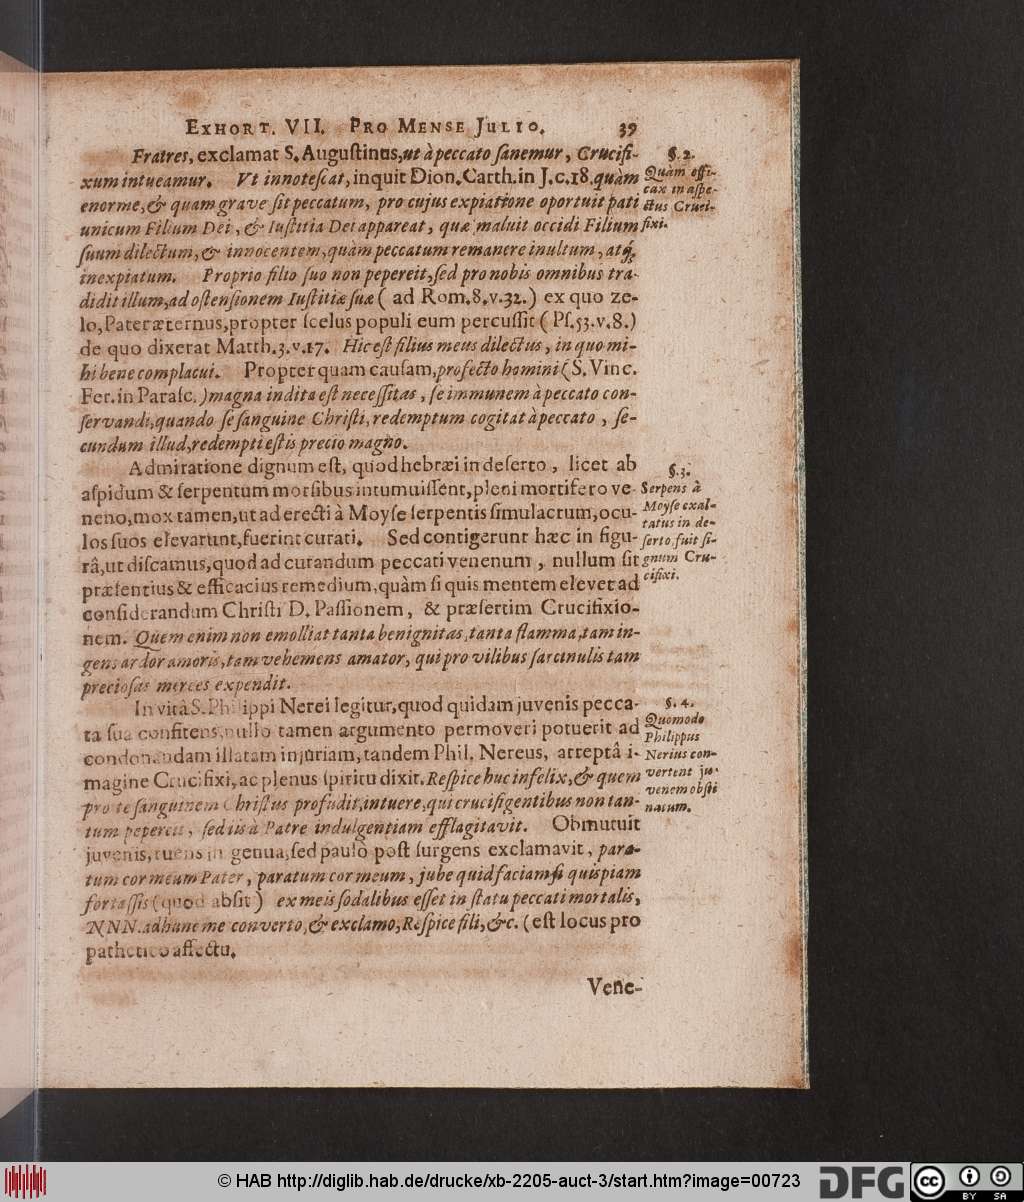 EXHORT. VII. PRO MENSE JULIO. 39
Fratres, exclamat S. Augustinus, ut à peccato sanemur, Crucifi-
xum intueamur. Vt innotescat, inquit Dion. Carth. in J.c.18. quàm
enorme, & quam grave sit peccatum, pro cujus expiatione oportuit pati
unicum Filium Dei, & Iustitia Dei appareat, quæ maluit occidi Filium
suum dilectum, & innocentem, quàm peccatum remanere inultum, atq;
inexpiatum. Proprio filio suo non pepereit, sed pro nobis omnibus tra-
didit illum, ad ostensionem Iustitiæ suæ ( ad Rom. 8. v. 32. ) ex quo ze-
lo, Pater æternus, propter scelus populi eum percussit ( Ps. 53. v. 8. )
de quo dixerat Matth. 3. v. 17. Hic est filius meus dilectus, in quo mi-
hi bene complacui. Propter quam causam, profecto homini ( S. Vinc.
Fer. in Parasc. ) magna indita est necessitas, se immunem à peccato con-
servandi, quando se sanguine Christi, redemptum cogitat à peccato, se-
cundum illud, redempti estis precio magno.
Admiratione dignum est, quod hebræi in deserto, licet ab
aspidum & serpentum morsibus intumuissent, pleni mortifero ve-
neno, mox tamen, ut ad erecti à Moyse serpentis simulacrum, ocu-
los suos elevarunt, fuerint curati. Sed contigerunt hæc in figu-
râ, ut discamus, quod ad curandum peccati venenum, nullum sit
præsentius & efficacius remedium, quàm si quis mentem elevet ad
considerandum Christi D. Passionem, & præsertim Crucifixio-
nem. Quem enim non emolliat tanta benignitas, tanta flamma, tam in-
gens ardor amoris, tam vehemens amator, qui pro vilibus sarcinulis tam
preciosas merces expendit.
In vitâ S. Philippi Nerei legitur, quod quidam juvenis pecca-
ta sua confitens, nullo tamen argumento permoveri potuerit ad
condonandam illatam injuriam, tandem Phil. Nereus, arreptâ i-
magine Crucifixi, ac plenus spiritu dixit. Respice huc infelix, & quem
pro te sanguinem Christus profudit, intuere, qui crucifigentibus non tan-
tum pepercit, sed iis à Patre indulgentiam efflagitavit. Obmutuit
juvenis, ruens in genua, sed paulò post surgens exclamavit, para-
tum cor meum Pater, paratum cor meum, jube quid faciam: si quispiam
fortassis ( quod absit ) ex meis sodalibus esset in statu peccati mortalis,
NNN. ad hunc me converto, & exclamo, Respice fili, &c. ( est locus pro
pathetico affectu.
Vene-
§. 2.
Quàm effi-
cax in aspe-
ctus Cruci-
fixi.
§. 3.
Serpens à
Moyse exal-
tatus in de-
serto, fuit si-
gnum Cru-
cifixi.
§. 4.
Quomodo
Philippus
Nerius con-
vertent ju-
venem obsti
natum.
© HAB http://diglib.hab.de/drucke/xb-2205-auct-3/start.htm?image=00723
DFG
cc BY SA